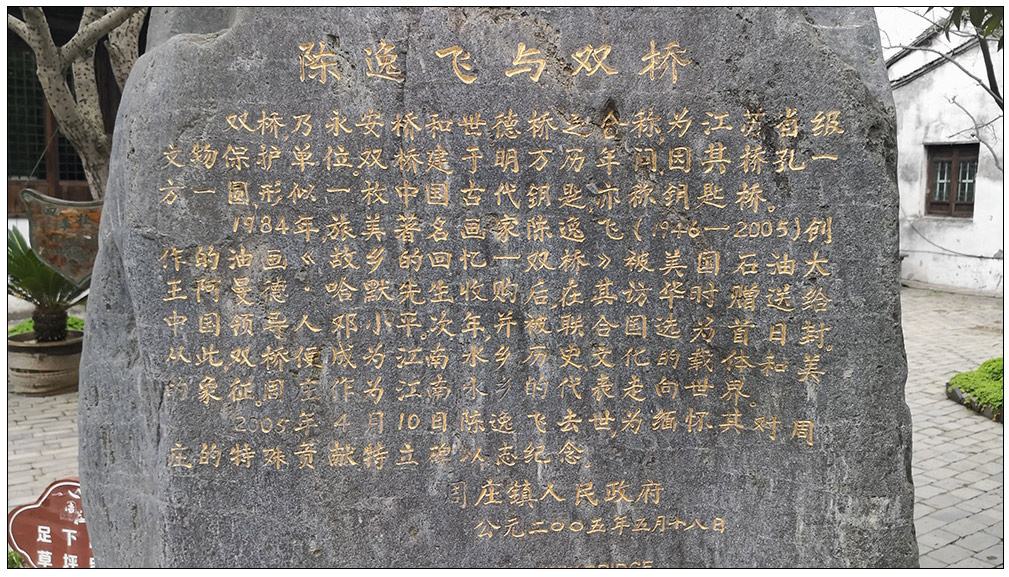 陈逸飞与双桥
双桥乃永安桥和世德桥之合称,为江苏省级
文物保护单位。双桥建于明万历年间,因其桥孔一
方一圆,形似一枚中国古代钥匙,亦称钥匙桥。
1984年,旅美著名画家陈逸飞(1946—2005)创
作的油画《故乡的回忆—双桥》被美国石油大
王阿曼德·哈默先生收购后,在其访华时赠送给
中国领导人邓小平。次年,并被联合国选为首日封。
从此,双桥便成为江南水乡历史文化的载体和美
的象征,周庄作为江南水乡的代表走向世界。
2005年4月10日陈逸飞去世,为缅怀其对周
庄的特殊贡献特立碑以志纪念.
周庄镇人民政府
公元二〇〇五年五月十八日
足下
草坪